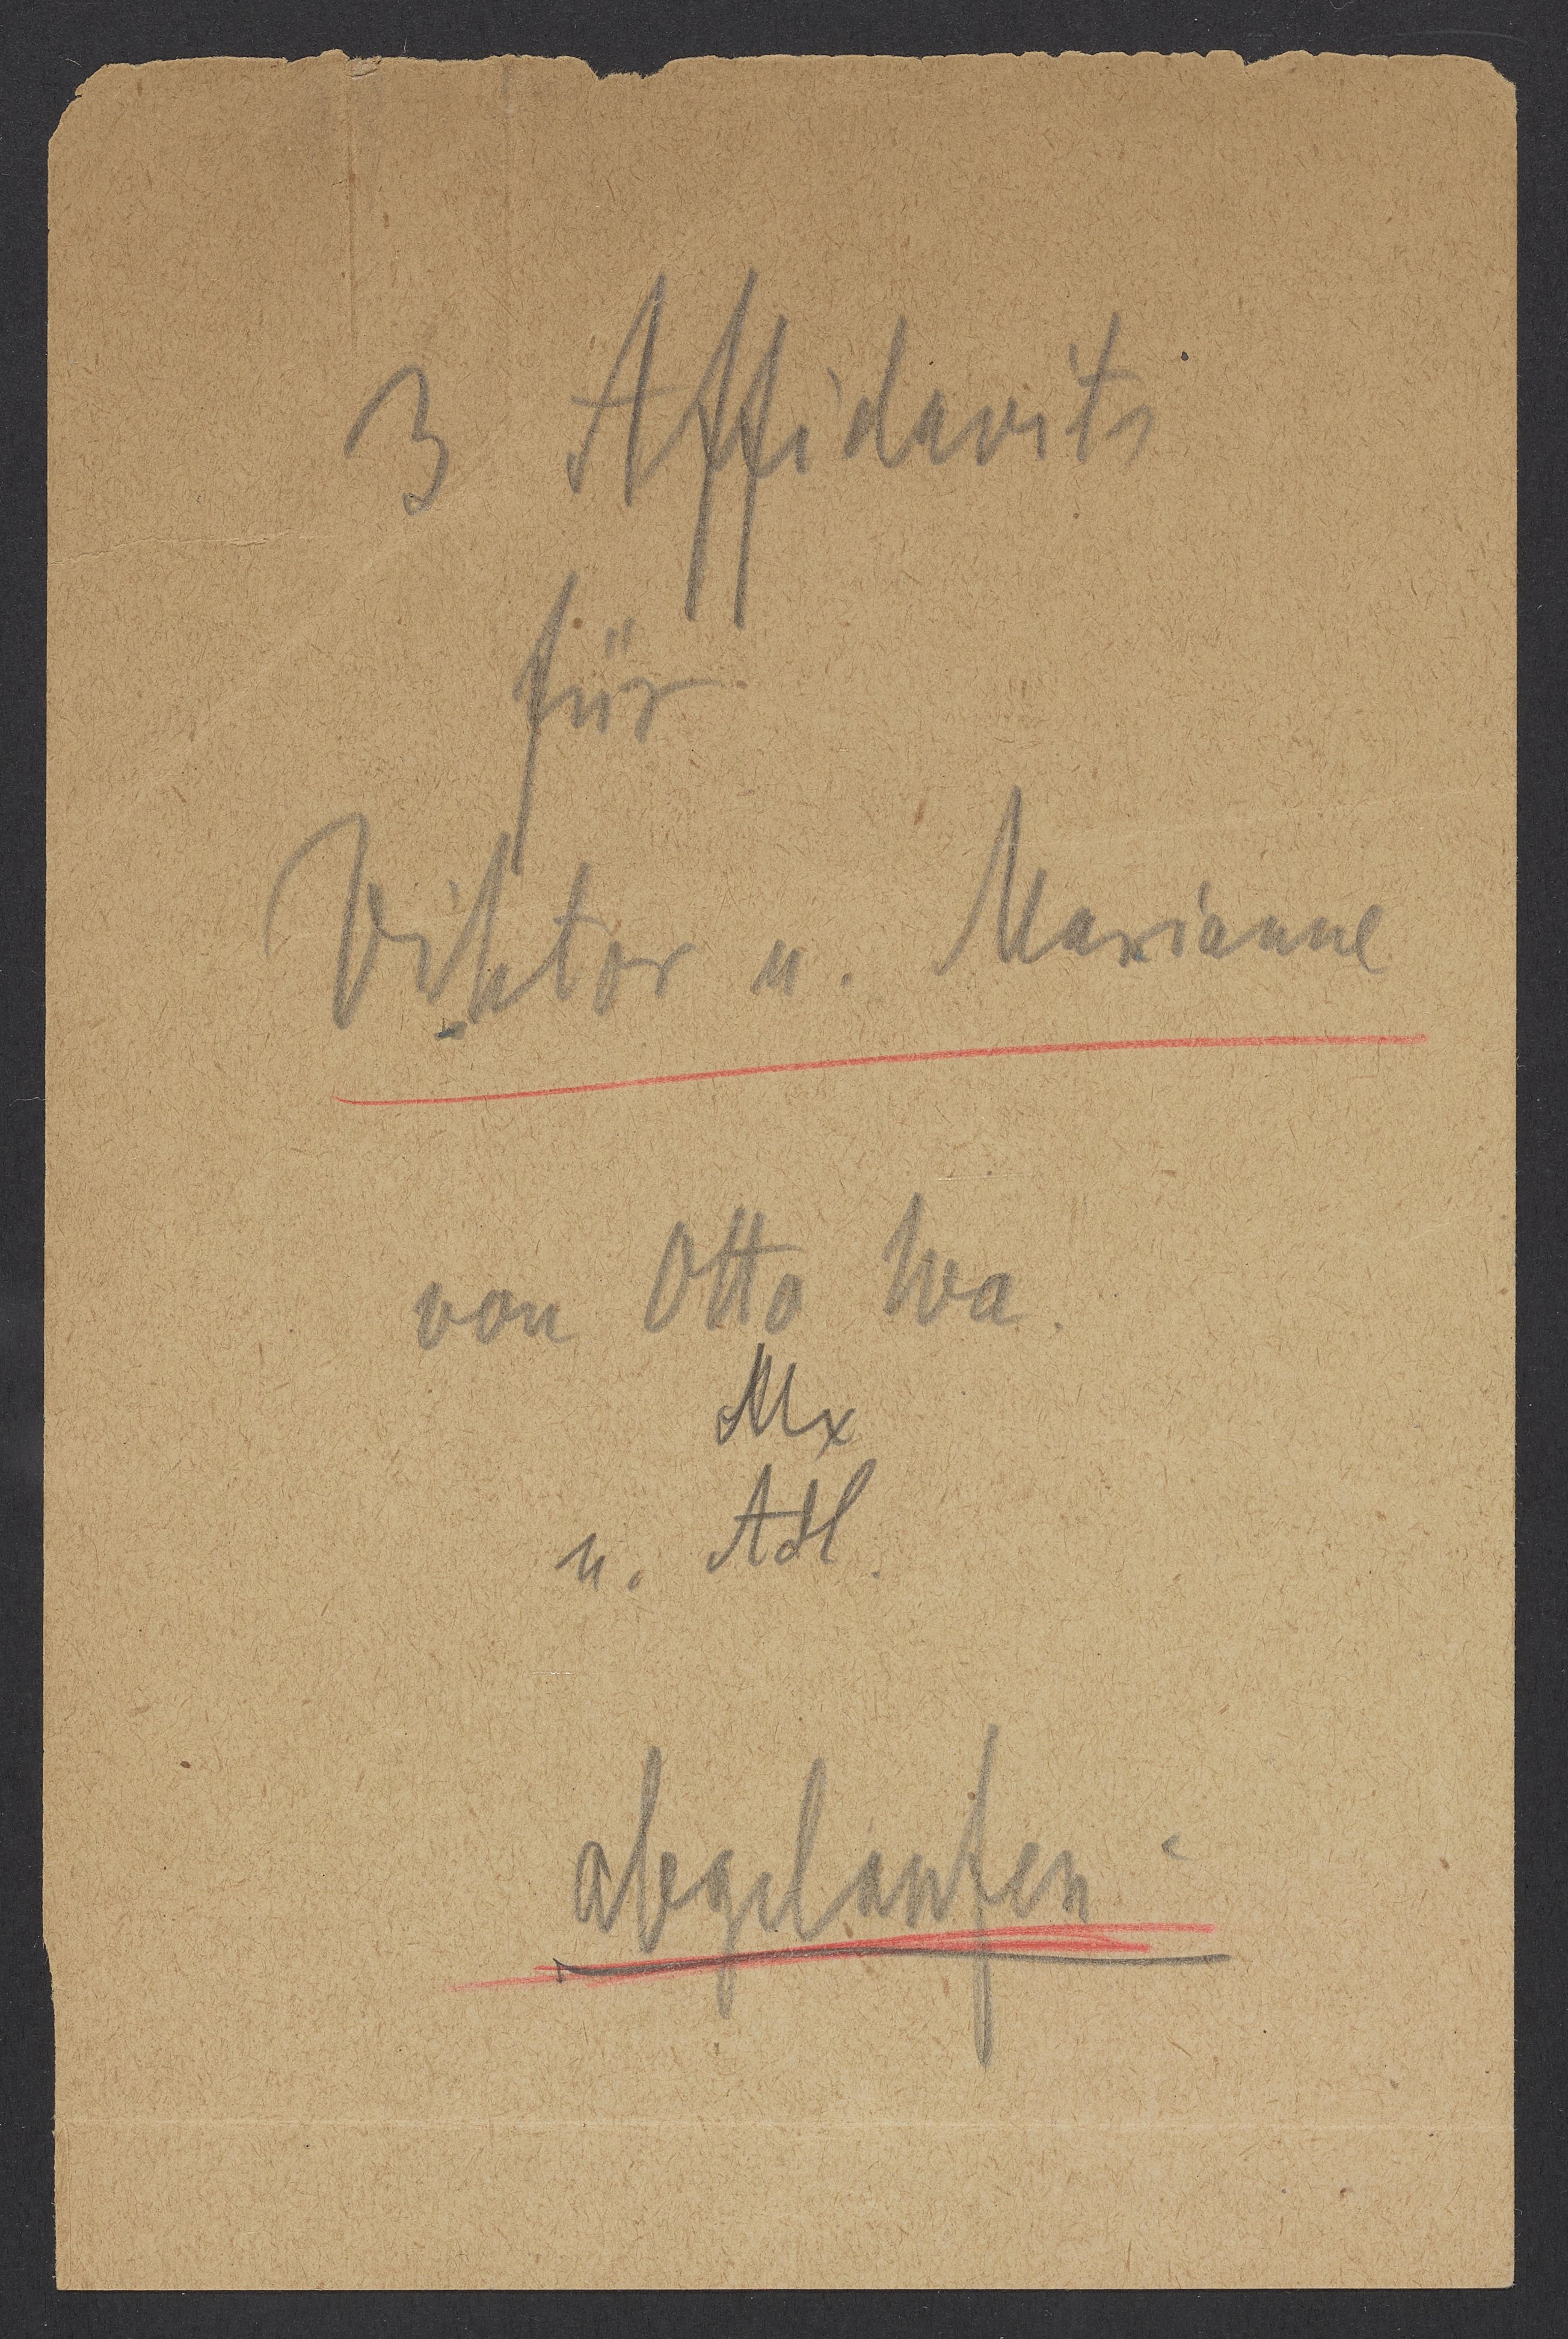 3 Affidavits
für
Viktor u. Marianne
von Otto Wa.
Mx
u. Adl.
abgelaufen